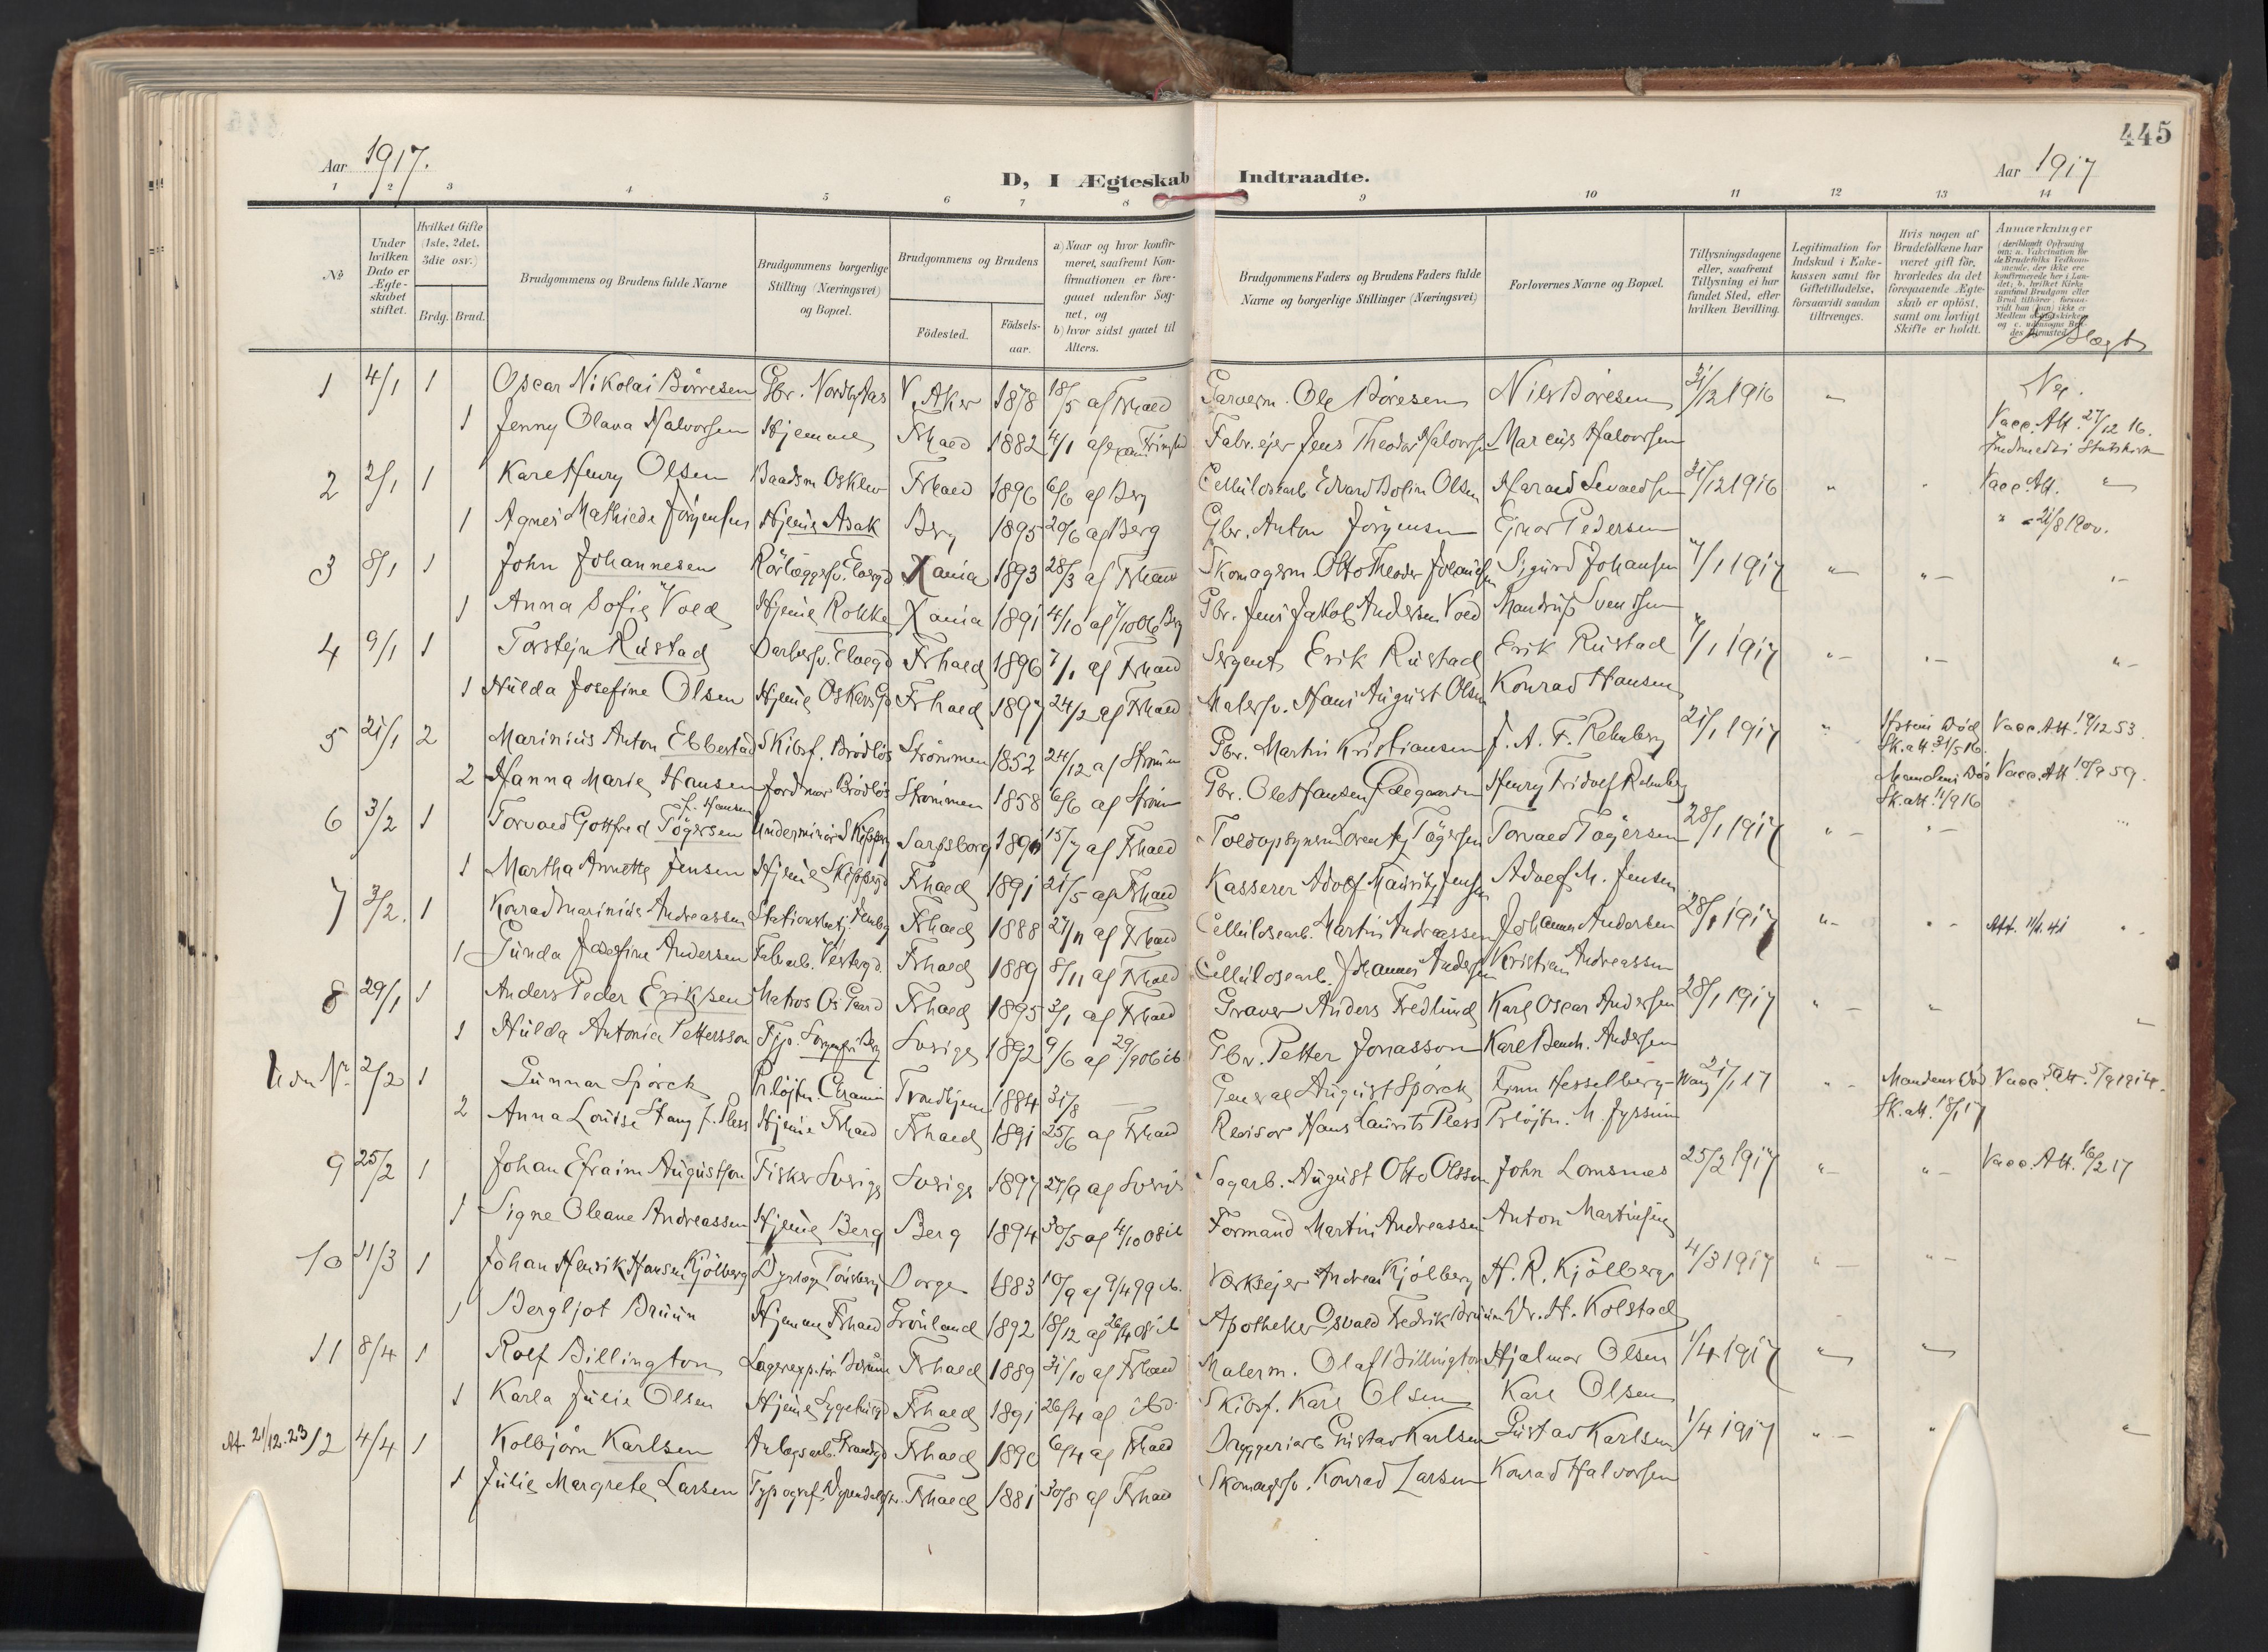 445
Aar 1917.
D, I Ægteskab Indtraadte.
Aar 1917
1 2 3 4 5 6 7 8 9 10 11 12 13 14
№
Under hvilken Dato er Ægteskabet stiftet.
Hvilket Gifte (1ste, 2det, 3die osv.)
Brdg. Brud.
Brudgommens og Brudens fulde Navne
Brudgommens borgerlige Stilling (Næringsvei) og Bopæl.
Brudgommens og Brudens
Födested.
Födsels-aar.
a) Naar og hvor konfirmeret, saafremt Konfirmationen er foregaaet udenfor Sognet, og
b) hvor sidst gaaet til Alters.
Brudgommens Faders og Brudens Faders fulde Navne og borgerlige Stillinger (Næringsvei)
Forlovernes Navne og Bopæl.
Tillysningsdagene eller, saafremt Tillysning ei har fundet Sted, efter hvilken Bevilling.
Legitimation for Indskud i Enkekassen samt for Giftetilladelse, forsaavidt saadan tiltrænges.
Hvis nogen af Brudefolkene har været gift för, hvorledes da det foregaaende Ægteskab er oplöst, samt om lovligt Skifte er holdt.
Anmærkninger
Slægt
1 4/1 1 Oscar Nikolai Börresen Gbr. Nordbytas V. Aker 1878 18/5 af Frhald Garverm. Ole Böresen Nils Böresen 31/12 1916 " Nei.
1 Jenny Olava Halvorsen Hjemme Frhald 1882 4/1 af Fabr.ejer Jens Theodor Halvorsen Marcus Halvorsen Vacc. Att. 27/12 16.
2 2/1 1 Karl Henry Olsen Baadsm. Osklev Frhald 1896 6/6 af Berg Cellulosearb. Edvard Olsen Harald Sevaldsen 31/12 1916 " " Vacc. Att. "
1 Agnes Mathilde Jörgensen Hjeme Asak Berg 1895 20/6 af Berg Gbr. Anton Jörgensen Ejnar Pedersen " " 21/8 1900.
3 8/1 1 John Johannesen Rörlæggersv. Elvegd Xania 1893 28/3 af Frhald Skomagerm. Otto Theodor Johansen Sigurd Johansen 7/1 1917 " " "
1 Anna Sofie Vold Hjeme Rokke Xania 1891 4/10 af 7/10 06 Berg Gbr. Jens Jakob Andersen Vold Mandrup Svendsen
4 9/1 1 Torstejn Rustad Barbersv. Elvegd Frhald 1896 7/1 af Frhald Sergent Erik Rustad Erik Rustad 7/1 1917 " " "
1 Hulda Josefine Olsen Hjeme Oskarsgd Frhald 1897 24/2 af Frhald Malersv. Hans August Olsen Konrad Hansen
5 21/1 2 Marinius Anton Ebbestad Skibsf. Brödlös Strömmen 1852 24/12 af Ström Gbr. Martin Kristiansen J. A. F. Rehnberg 21/1 1917 " Hstrui Död Sk. att. 31/5 16. Vacc. Att. 19/12 53.
2 Hanna Marie Hansen Jordmor Brödlös Strömmen 1858 6/6 af Ström Gbr. Ole Hansen Ödegaarden Henry Fridolf Rehnberg Mandens Död Sk. att. 11/9 16 Vacc. Att. 10/9 59.
f. Hansen
6 3/2 1 Torvald Gottfred Tögersen Underminör Skippergd Sarpsborg 1890 15/7 af Frhald Toldopsynsm. Lorentz Tögersen Torvald Tögersen 28/1 1917 " "
1 Martha Annette Jensen Hjeme Skippergd Frhald 1891 21/5 af Frhald Kasserer Adolf Mauritz Jensen Adolf M. Jensen
7 3/2. 1 Konrad Marinius Andreassen Stationsbetj. Frhald 1888 27/11 af Frhald Cellulosearb. Martin Andreassen Johannes Andersen 28/1 1917 " " Att. 11/1. 41
1 Gunda Josefine Andersen Fabr.arb. Vestergd. Frhald 1889 8/11 af Frhald Cellulosearb. Johannes Andersen Kristian Andreassen
8 29/1 1 Anders Peder Eriksen Matros Os Gaard Frhald 1895 3/1 af Frhald Graver Anders Fredlund Karl Oscar Andersen 28/1 1917 " "
1 Hulda Antonia Pettersson Tjp. Sorgenfri Berg Sverige 1892 9/6 af 29/9 06 ib Gbr. Petter Jonasson Karl Bench. Andersen
Uden Nr. 2/2 1 Gunnar Spörck Prlöjtn. Chrania Trondhjem 1884 31/8 — General August Spörck Finn Hesselberg-Wang 21/1 17 " Mandens Död Sk. att. 18/1 17 Vacc. Att. 5/9 1914.
2 Anna Louise Stang f. Pless Hjeme Frhald Frhald 1891 25/6 af Frhald Revisor Hans Laurits Pless Prlöjtn. M. Jyssum
9 25/2 1 Johan Efraim Augustson Fisker Sverige Sverige 1897 27/9 af Sverige Sagarb. August Otto Olsson John Lomsnes 25/2 1917 " " Vacc. Att. 16/2 17
1 Signe Oleane Andreassen Hjeme Berg Berg 1894 30/5 af 4/10 08 ib Formand Martin Andreassen Anton Martinsen
10 11/3 1 Johan Henrik Hansen Kjölberg Dyrlæge Tönsberg Borge 1883 10/9 af 9/4 99 ib. Værksejer Andreas Kjölberg H. R. Kjölberg 4/3 1917 " "
1 Bergljot Bruun Hjemme Frhald Grönland 1892 18/12 af 26/4 08 ib Apotheker Osvald Fredrik Bruun Dr. H. Kolstad
11 8/4 1 Rolf Billington Lagerexp. Frhald 1889 31/10 af Frhald Malerm. Olaf Billington Hjalmar Olsen 1/4 1917 " "
1 Karla Julie Olsen Hjeme Sygehusgd Frhald 1891 26/4 af ibd. Skibsf. Karl Olsen Karl Olsen
At. 21/12. 23 12 4/4 1 Kolbjörn Karlsen Anlægsarb. Strandgd Frhald 1890 6/4 af Frhald Bryggeriarb. Gustav Karlsen Gustav Karlsen 1/4 1917 " " "
1 Julie Margrete Larsen Typograf Frhald 1881 30/8 af Frhald Skomagersv. Konrad Larsen Konrad Halvorsen